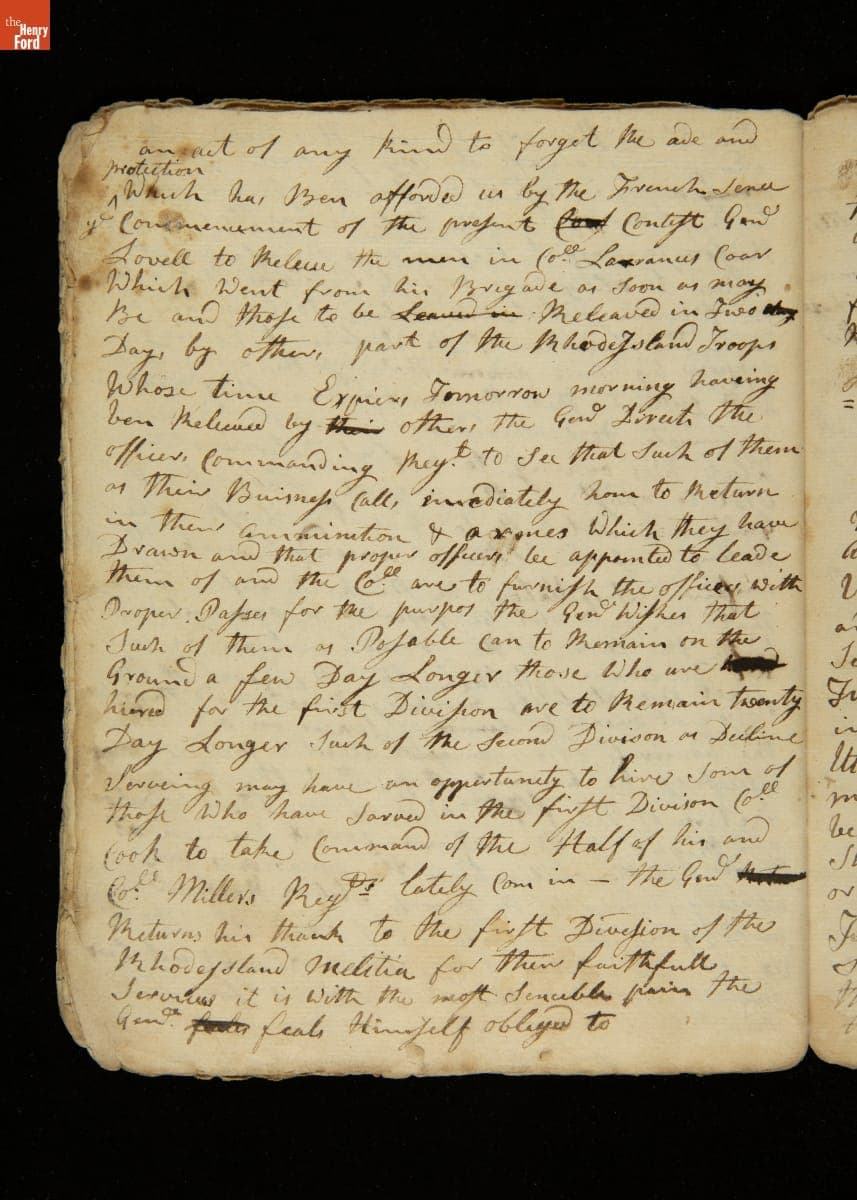 the
Henry
Ford
an act of any kind to forget the ade and
protection
^ Which has Ben afforded us by the French sence
ye Commencement of the present Contest Genl
Lovell to Releve the men in Coll Laxrances Coar
Which Went from his Brigade as soon as may
Be and those to be Releaved in Two
Days by other, part of the RhodeIsland Troops
Whose time Expiers Tomorrow morning haveing
ben Releived by their others the Genl Dirrects the
officers Commanding Regt to See that Such of them
as their Buisness Calls imediately hom to Return
in their amminition & armes Which they have
Drawn and that proper officers be appointed to leade
them of and the Coll are to furnish the officers with
Proper Passes for the purpos the Genl Wishes that
Such of them as Posable can to Remain on the
Ground a few Day Longer those Who are
hiered for the first Division are to Remain twenty
Day Longer Such of the Second Divison as Decline
Serveing may have an opportunity to hire Som of
those Who have Sarved in the first Divison Coll
Cook to take Command of the Half of his and
Coll Millers Regts lately Com in — the Genl
Returns his thank to the first Divesion of the
RhodeIsland Melitia for their faithfull
Services it is With the most Senceable pain the
Genl feals Himself oblayed to